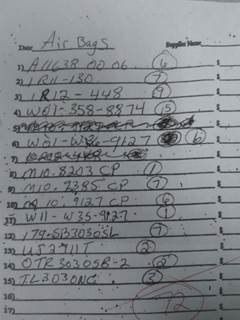 Date Air Bags Supplier Name
1) A11638 00 06 6 $
2) 1R11-130 7 $
3) 1R12-448 9 $
4) W01-358-8874 15 $
5) $
6) W01-W35-9127 6 $
7) $
8) M10.8203 CP 1 $
9) M10.7385 CP 7 $
10) M 10.9127 CP 6 $
11) W11-W35-9127 1 $
12) 179.SB3030SL 7 $
13) US2911T 2 $
14) OTR3030SR-2 2 $
15) TL3030NG 3 $
16) $
17) 72 $